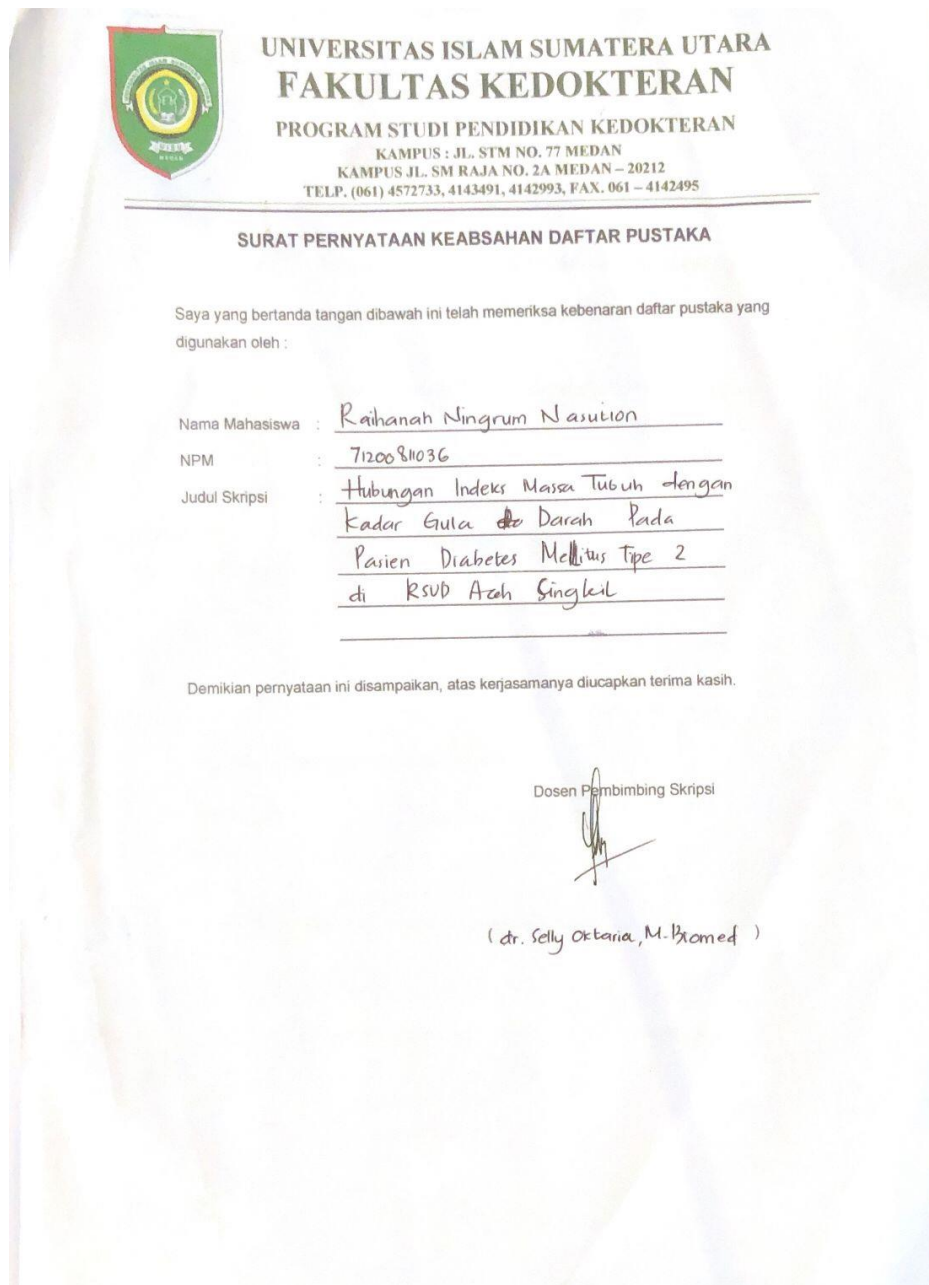 UNIVERSITAS ISLAM SUMATERA UTARA
FAKULTAS KEDOKTERAN
PROGRAM STUDI PENDIDIKAN KEDOKTERAN
KAMPUS : JL. STM NO. 77 MEDAN
KAMPUS JL. SM RAJA NO. 2A MEDAN – 20212
TELP. (061) 4572733, 4143491, 4142993, FAX. 061 – 4142495
SURAT PERNYATAAN KEABSAHAN DAFTAR PUSTAKA
Saya yang bertanda tangan dibawah ini telah memeriksa kebenaran daftar pustaka yang
digunakan oleh :
Nama Mahasiswa : Raihanah Ningrum Nasution
NPM : 71200811036
Judul Skripsi : Hubungan Indeks Massa Tubuh dengan
Kadar Gula Darah Pada
Pasien Diabetes Mellitus Tipe 2
di RSUD Aceh Singkil
Demikian pernyataan ini disampaikan, atas kerjasamanya diucapkan terima kasih.
Dosen Pembimbing Skripsi
( dr. Selly Oktaria, M.Biomed )